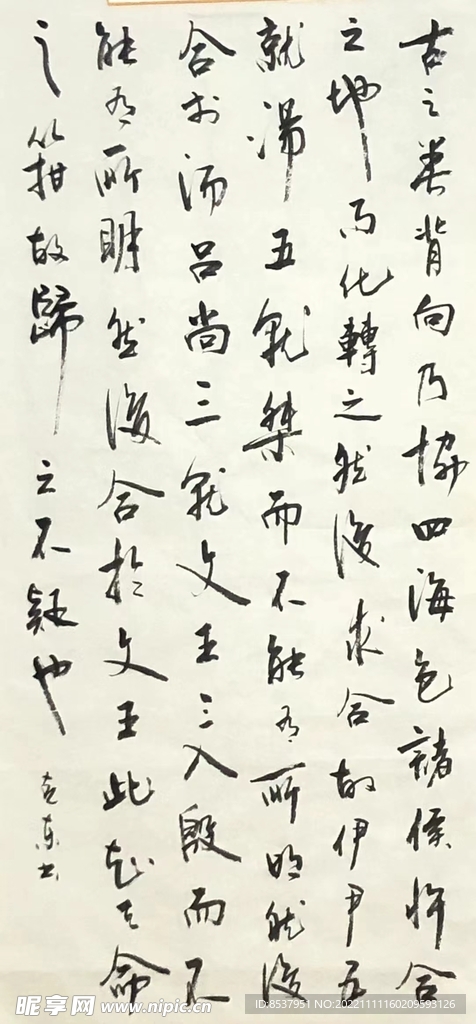 古之善背向乃協四海包諸侯忤合
之地而化轉之然後求合故伊尹五
就湯五就桀而不能有所明然後
合於湯呂尚三就文王三入殷而不
能有所明然後合於文王此知天命
之箝故歸之不疑也
克東書
昵享网 www.nipic.cn
ID:8537951 NO:20221111160209593126